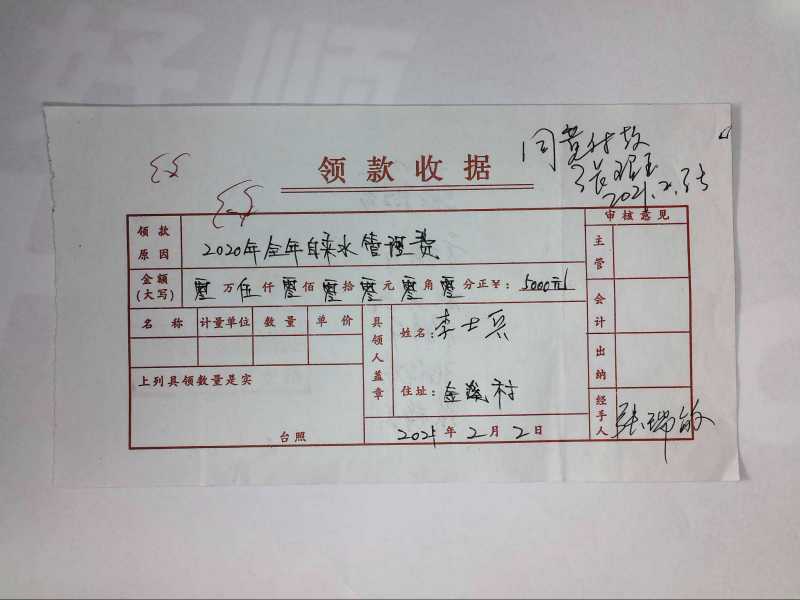 好师
领款收据
同意付款
2021.2.35
审核意见
领款原因
2020年全年自来水管理费
主管
金额(大写)
零万伍仟零佰零拾零元零角零分正¥:5000元
会计
名称 计量单位 数量 单价
具领人盖章
姓名:李士兵
出纳
上列具领数量是实
住址:金溪村
经手人
张瑞敏
台照
2021年2月2日